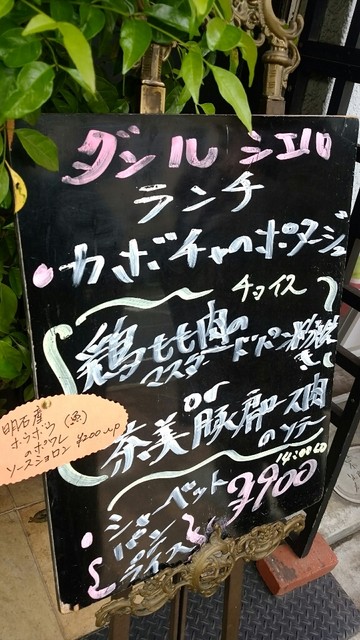 ダン ル シエル
ランチ
・カボチャのポタージュ
チョイス
鶏もも肉の
マスタードパン粉焼き
or
奈美豚郡ス肉
のソテー
14:00 LO
・シャーベット
パン
or
ライス
¥900
明石産
ホウボウ(魚)
のポワレ
ソースショロン ¥200up